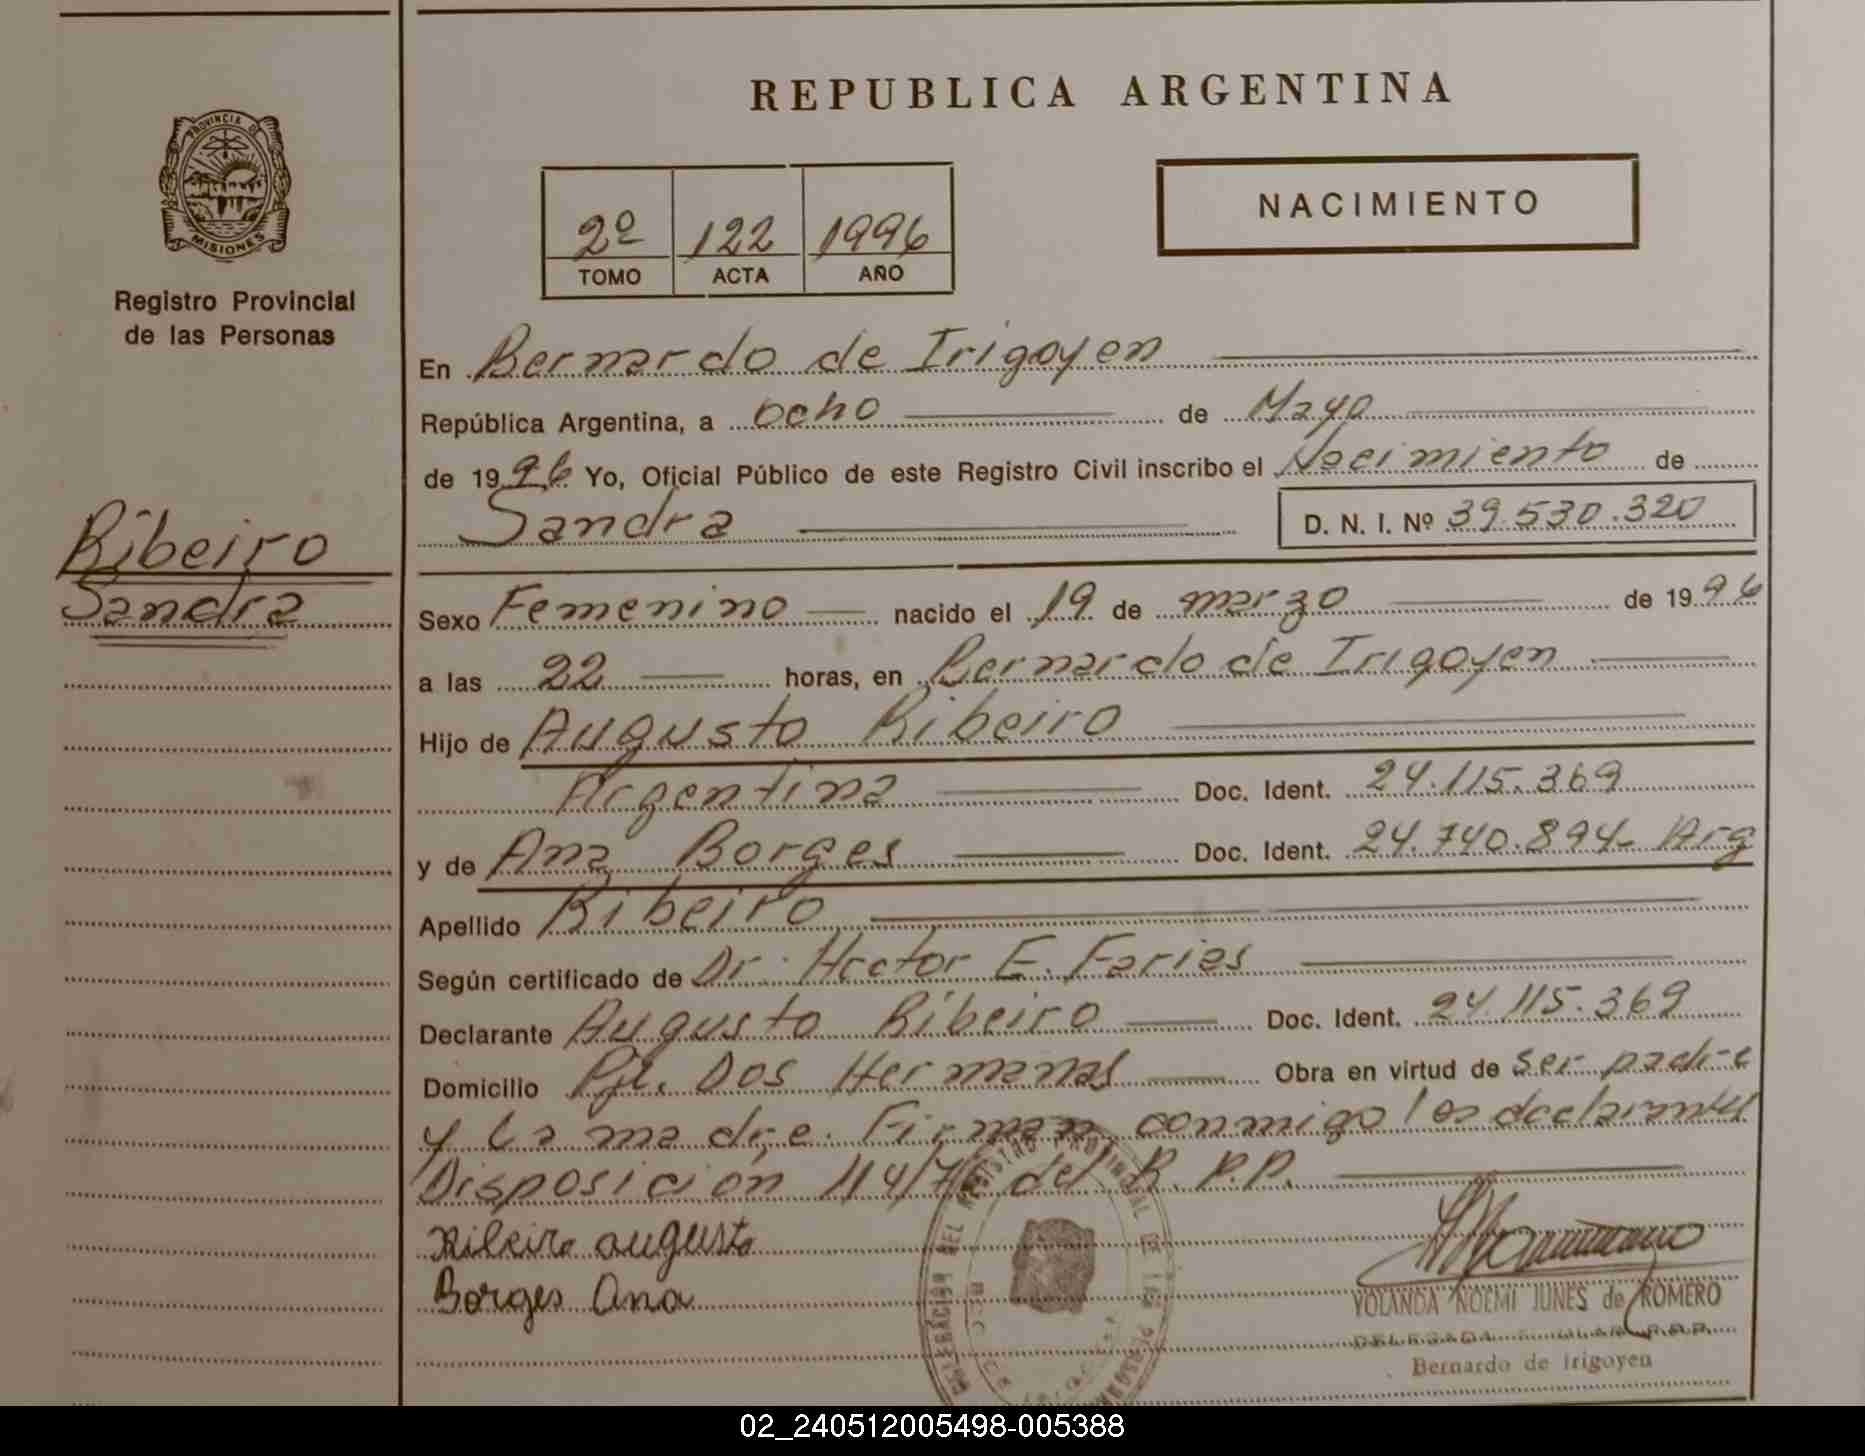 PROVINCIA DE
MISIONES
Registro Provincial
de las Personas
Ribeiro
Sandra
REPUBLICA ARGENTINA
2º 122 1996
TOMO ACTA AÑO
NACIMIENTO
En Bernardo de Irigoyen
República Argentina, a ocho de Mayo
de 1996 Yo, Oficial Público de este Registro Civil inscribo el Nacimiento de
Sandra D. N. I. Nº 39.530.320
Sexo Femenino nacido el 19 de marzo de 1996
a las 22 horas, en Bernardo de Irigoyen
Hijo de Augusto Ribeiro
Argentina Doc. Ident. 24.115.369
y de Ana Borges Doc. Ident. 24.740.894- Arg
Apellido Ribeiro
Según certificado de Dr. Hector E. Farias
Declarante Augusto Ribeiro Doc. Ident. 24.115.369
Domicilio Pje. Dos Hermanas Obra en virtud de ser padre
y la madre. Firman conmigo los declarantes
Disposición 114/76 del R.P.P.
Ribeiro augusto
Borges Ana
DEL REGISTRO PROVINCIAL DE LAS
YOLANDA NOEMI JUNES de ROMERO
DELEGADA TITULAR R.P.P.
Bernardo de Irigoyen
02_240512005498-005388